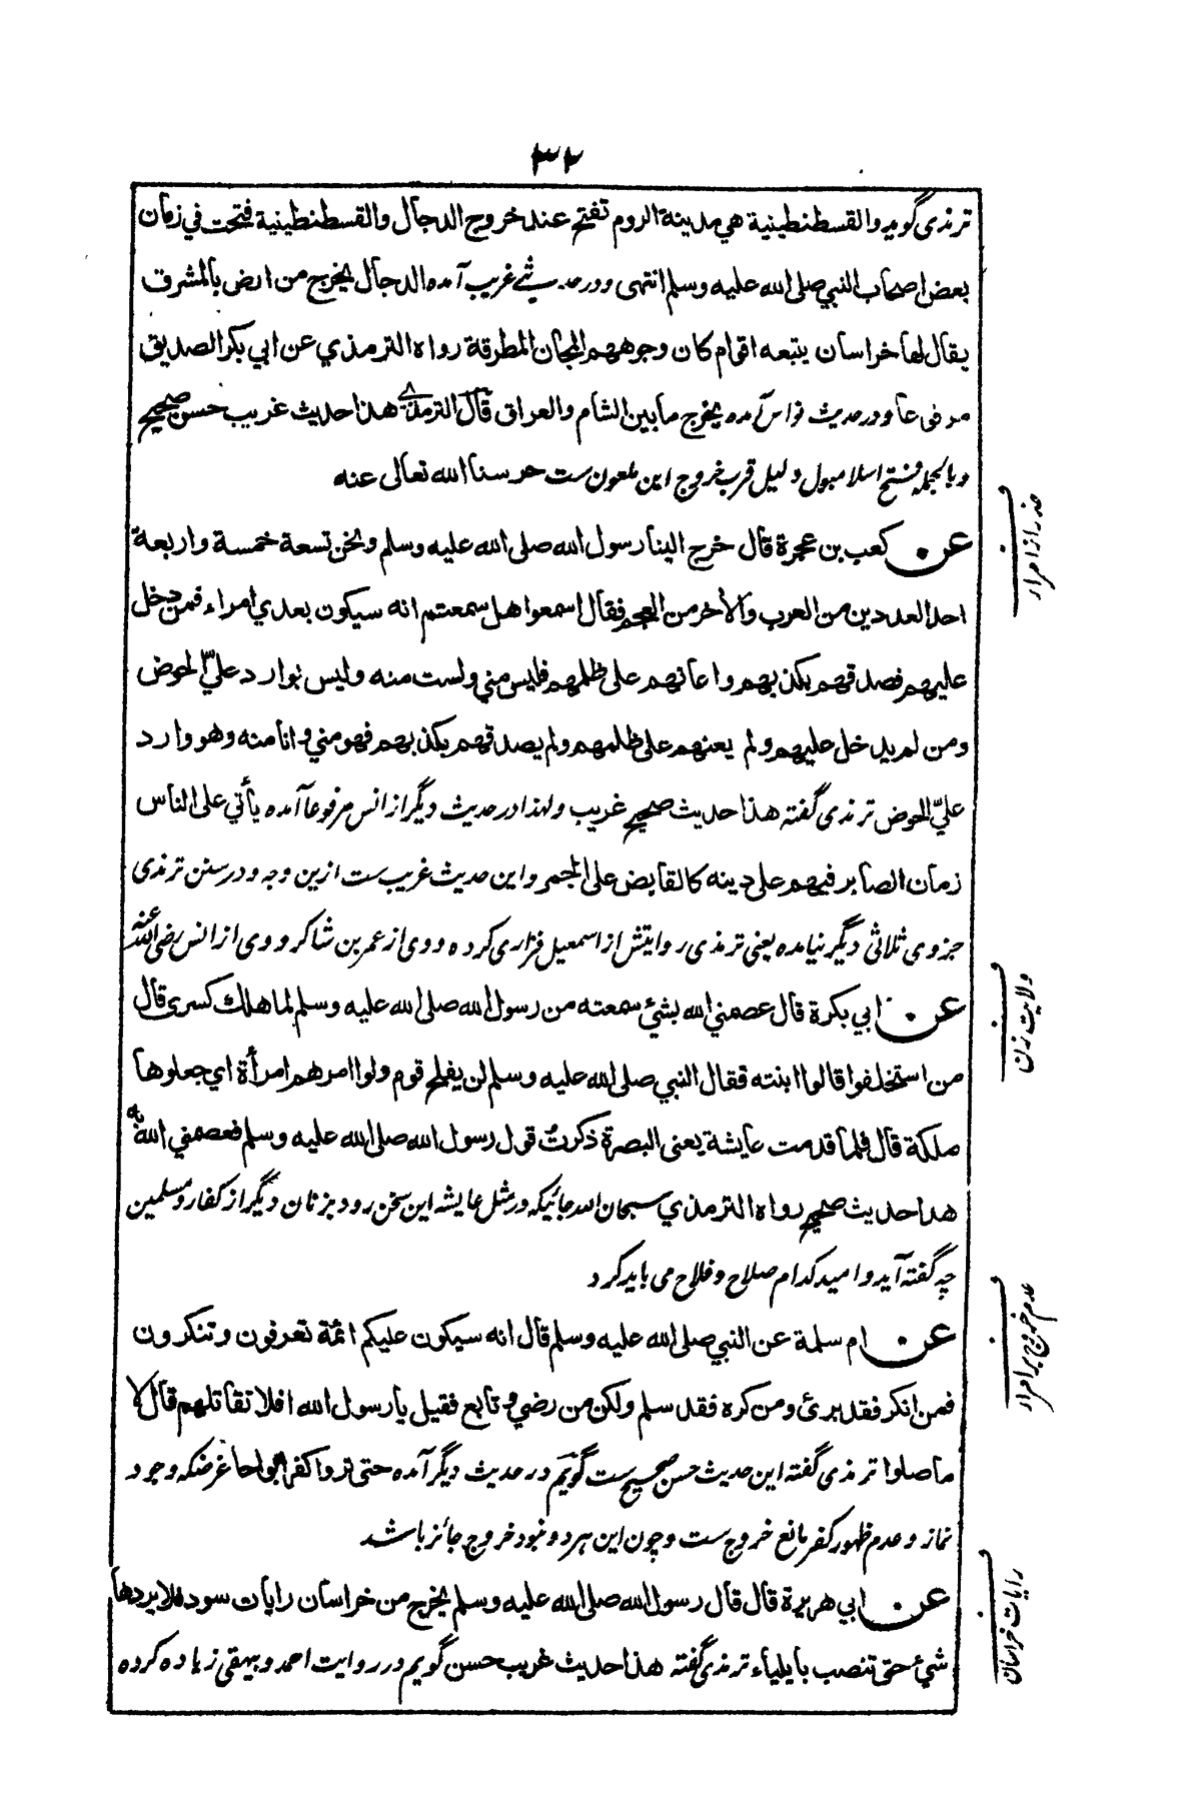 ۳۲
ترمذی گوید والقسطنطينية هي مدينة الروم تفتح عند خروج الدجال والقسطنطينية فتحت في زمان
بعض اصحاب النبي صلى الله عليه وسلم انتهى ودر حديثے غريب آمده الدجال يخرج من ارض بالمشرق
يقال لها خراسان يتبعه اقوام كان وجوههم المجان المطرقة رواه الترمذي عن ابي بكر الصديق
مرفوعا ودر حدیث نواس آمده يخرج ما بين الشام والعراق قال الترمذے هذا حديث غريب حسن صحيح
وبالجمله فتح اسلامبول دلیل قرب خروج این ملعون ست حرسنا الله تعالى عنه
عن كعب بن عجرة قال خرج الينا رسول الله صلى الله عليه وسلم ونحن تسعة خمسة واربعة
احد العددين من العرب والأخر من العجم فقال اسمعوا هل سمعتم انه سيكون بعدي امراء فمن دخل
عليهم فصدقهم بكذبهم واعانهم على ظلمهم فليس مني ولست منه وليس بوارد عليّ الحوض
ومن لم يدخل عليهم ولم يعنهم على ظلمهم ولم يصدقهم بكذبهم فهو مني وانا منه وهو وارد
عليّ الحوض ترمذی گفته هذا حديث صحيح غريب ولهذا در حدیث دیگر از انس مرفوعا آمده يأتي على الناس
زمان الصابر فيهم على دينه كالقابض على الجمر واین حدیث غریب ست ازین وجه ودر سنن ترمذی
جزوی ثلاثی دیگر نیامده یعنی ترمذی روایتش از اسمعیل فزاری کرده ووی از عمر بن شاکر ووی از انس رضی الله عنه
عن ابي بكرة قال عصمني الله بشيء سمعته من رسول الله صلى الله عليه وسلم لما هلك كسرى قال
من استخلفوا قالوا ابنته فقال النبي صلى الله عليه وسلم لن يفلح قوم ولوا امرهم امرأة اي جعلوها
ملكة قال فلما قدمت عايشة يعنى البصرة ذكرت قول رسول الله صلى الله عليه وسلم فعصمني الله به
هذا حديث صحيح رواه الترمذي سبحان الله جائیکه در مثل عایشه این سخن رود بزنان دیگر از کفار ومسلمین
چه گفته آید وامید کدام صلاح وفلاح می باید کرد
عن ام سلمة عن النبي صلى الله عليه وسلم قال انه سيكون عليكم ائمة تعرفون وتنكرون
فمن انكر فقد برئ ومن كره فقد سلم ولكن من رضي وتابع فقيل يا رسول الله افلا تقاتلهم قال لا
ما صلوا ترمذی گفته این حدیث حسن صحیح ست گویم در حدیث دیگر آمده حتى تروا كفرا بواحا غرضکه وجود
نماز وعدم ظهور کفر مانع خروج ست وچون این هر دو نبود خروج جائز باشد
عن ابي هريرة قال قال رسول الله صلى الله عليه وسلم يخرج من خراسان رايات سود فلا يردها
شيء حتى تنصب بايلياء ترمذی گفته هذا حديث غريب حسن گویم در روایت احمد وبیهقی زیاده کرده
حذر از امراء
ولایت زن
عدم خروج بر امراء
رایات خراسان